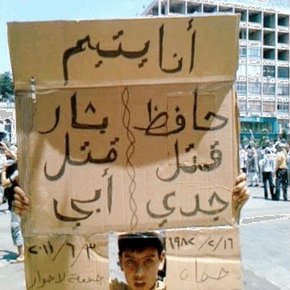 أنا يتيم
حافظ
قتل
جدي
بشار
قتل
أبي
١٩٨٢/٢/١٦
٢٠١١/٦/٣
جمعة لا حوار